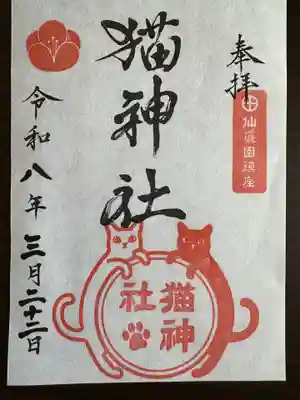 奉拝
仙巌園鎮座
猫神社
猫神
社
令和八年三月二十二日